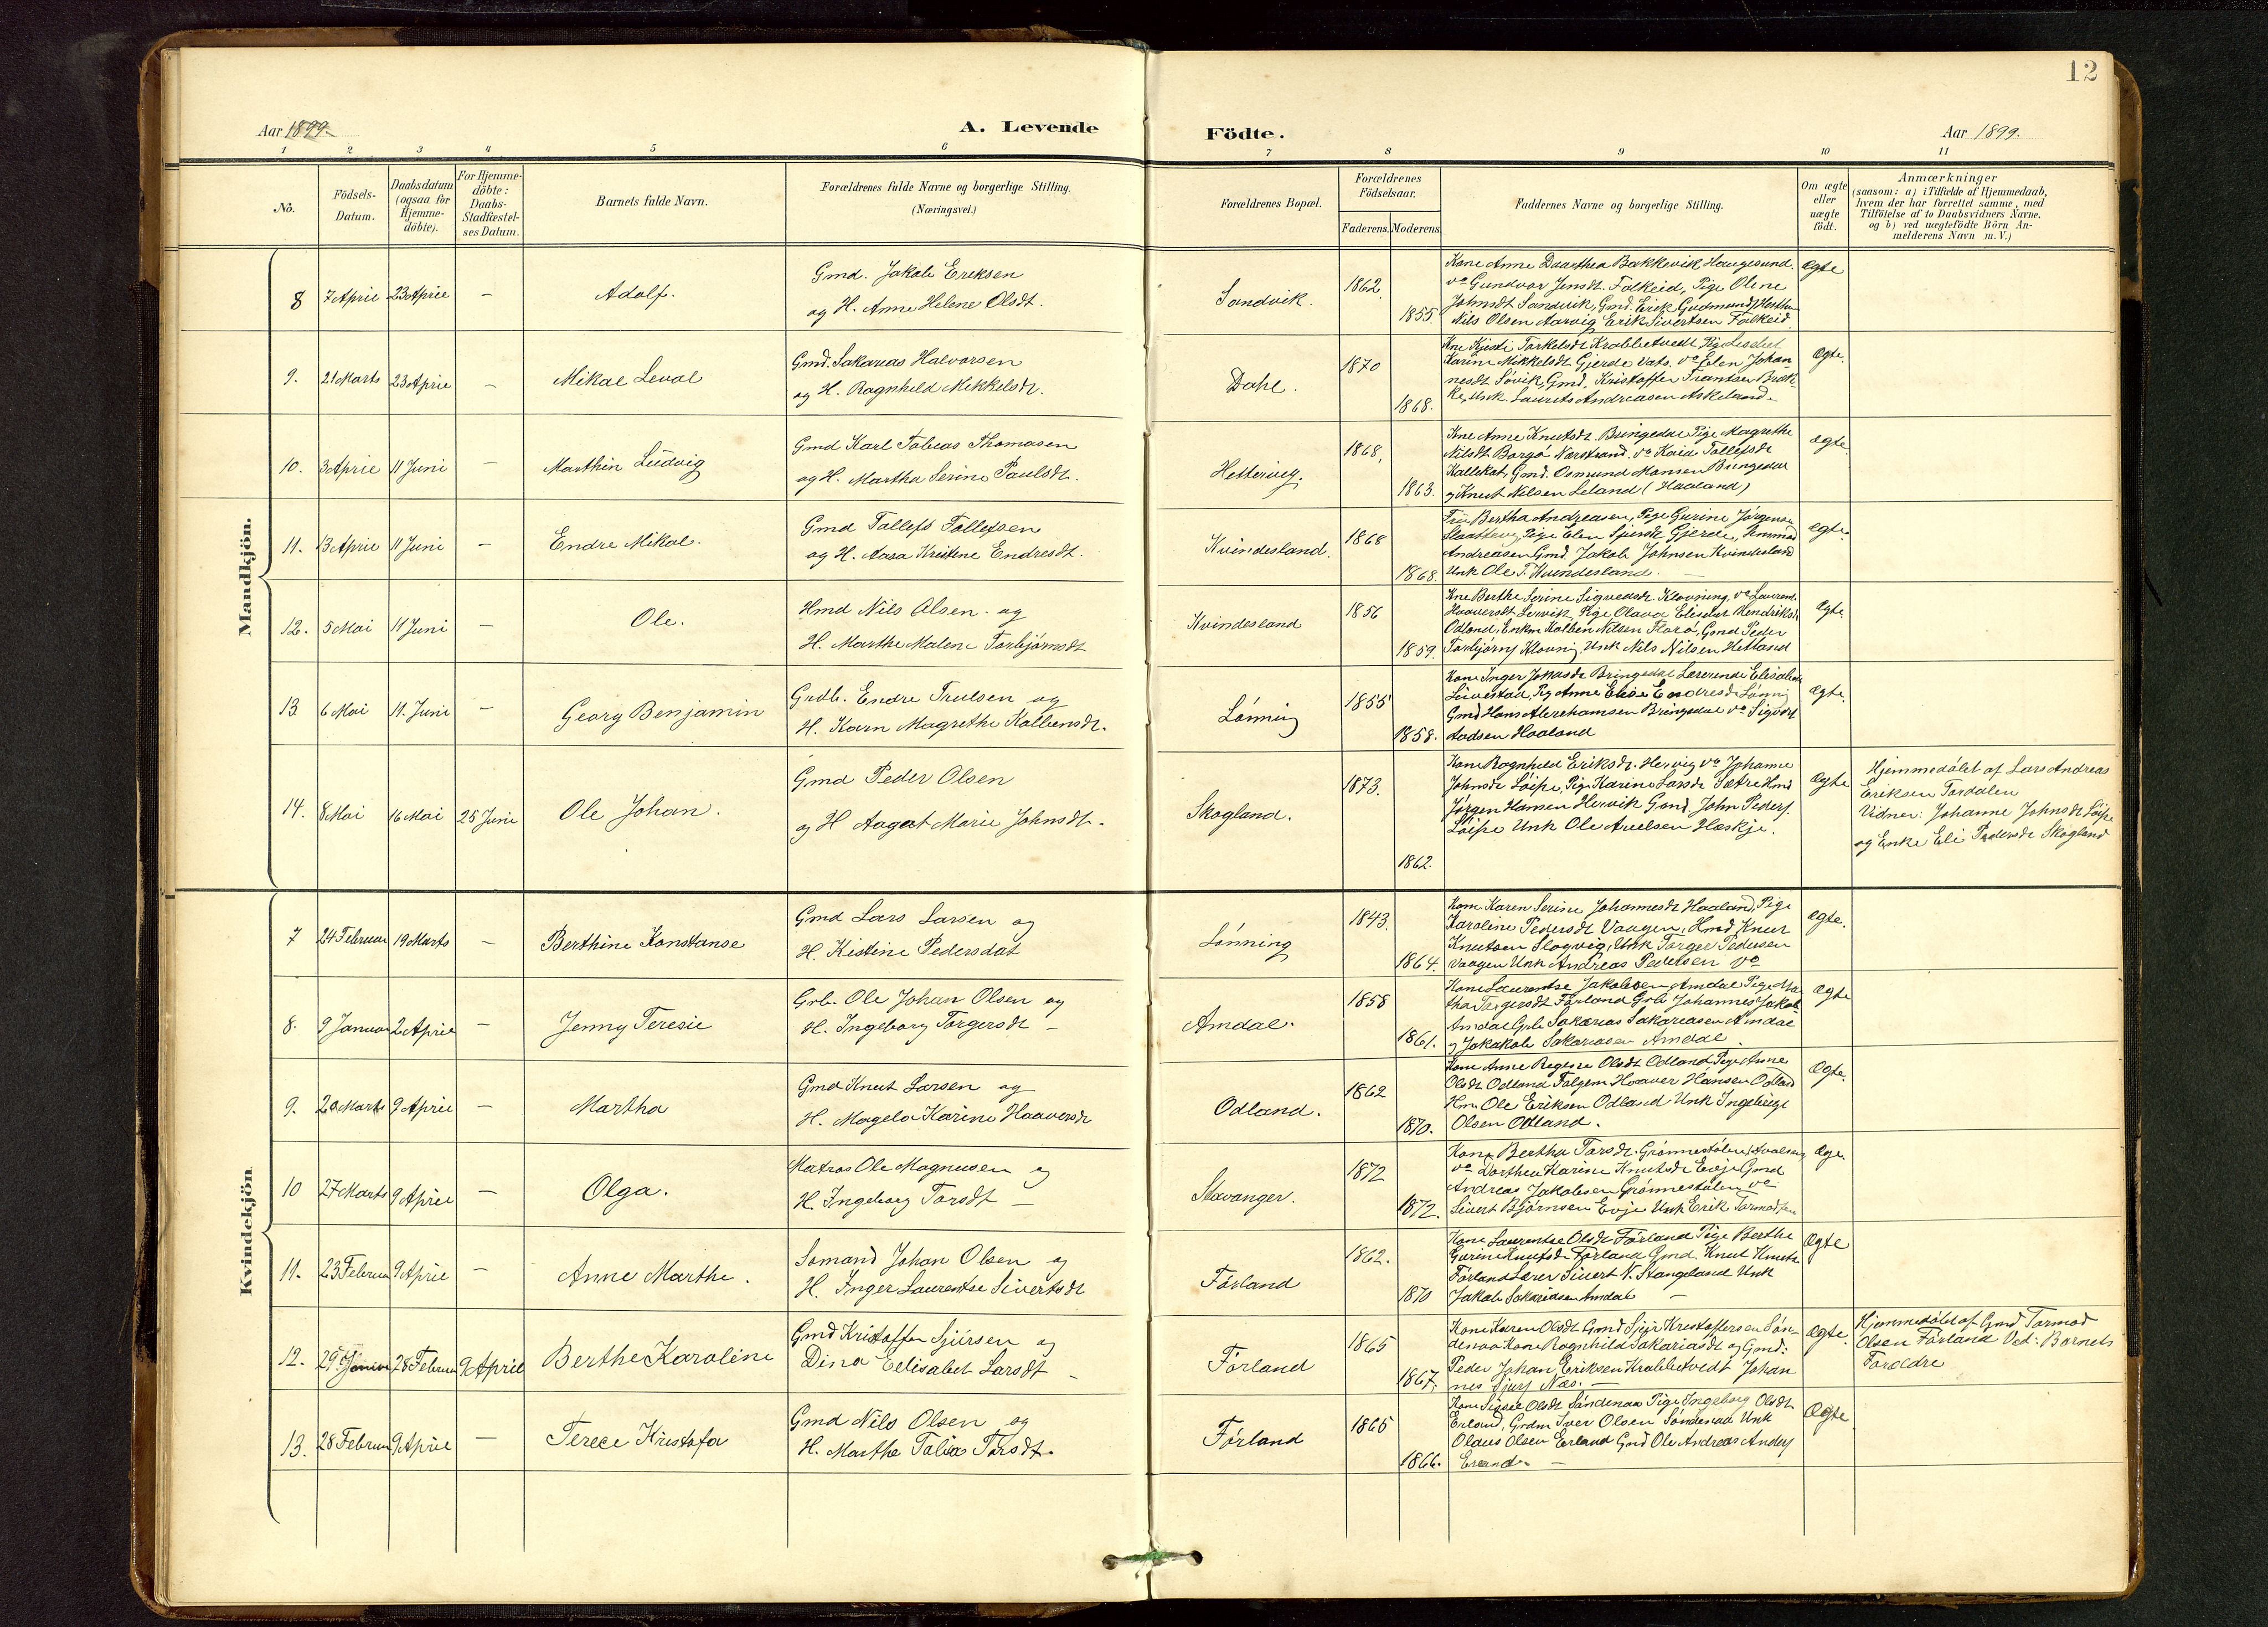 12
Aar 1899.
A. Levende
Födte.
Aar 1899.
1 2 3 4 5 6 7 8 9 10 11
No.
Födsels-
Datum.
Daabsdatum
(ogsaa for
Hjemme-
döbte).
For Hjemme-
döbte:
Daabs-
Stadfæstel-
ses Datum.
Barnets fulde Navn.
Forældrenes fulde Navne og borgerlige Stilling.
(Næringsvei.)
Forældrenes Bopæl.
Forældrenes
Födselsaar.
Faderens. Moderens
Faddernes Navne og borgerlige Stilling.
Om ægte
eller
uægte
födt.
Anmærkninger
(saasom: a) i Tilfælde af Hjemmedaab,
hvem der har forrettet samme, med
Tilföielse af to Daabsvidners Navne,
og b) ved uægtefödte Börn An-
melderens Navn m. V.)
Mandkjön.
8 7 April 23 April – Adolf.
Gmd. Jakob Eriksen
og H. Anne Helene Olsdt.
Sandvik.
1862.
1855.
Kone Anne Daarthea Bakkevik Haugesund.
vo Gundvor Jensdt. Falkeid, Pige Olene
Johnsdt Sandvik, Gmd. Erik Gudmunds
Nils Olsen Aarvig Erik Sivertsen Falkeid
Ægte
9. 21 Marts 23 April – Mikal Leval
Gmd. Sakarias Halvorsen
og H. Ragnhild Mikkelsdt.
Dahl.
1870
1868.
Kne Kjersti Torkelsdt Krabbetvedt Pig Lisebet
Karine Mikkelsdt Gjerde Vats. vo Elen Johan-
nesdt Søvik, Gmd. Kristoffer Trantsen Brek-
ke, Unk. Laurits Andreasen Askeland.
Ægte.
10. 3 April 11 Juni – Marthin Ludvig
Gmd Karl Tobias Thomasen
og H. Martha Serine Paulsdt.
Hettervig.
1868,
1863.
Kne Anne Knutsdt. Bringedal Pige Magrethe
Nilsdt Borgø Nærstrand. vo Kaia Tollefsdt
Kallekot, Gmd. Osmund Monsen Bringedal
og Knut Nilsen Leland (Haaland)
Ægte
11. 13 April 11 Juni – Endre Mikal.
Gmd Tollefs Tollefsen
og H. Aasa Kristine Endresdt.
Kvindesland.
1868
1868.
Frü Bertha Andreasen, Pige Gurine Jørgensen
Slaattevig, Pige Elen Sjursdt Gjerde,
Andreasen Gmd. Jakob Johnsen Kvindesland
Unk Ole T. Kvindesland. –
Ægte.
12. 5 Mai 11 Juni – Ole.
Hmd Nils Olsen. og
H. Marthe Malene Torbjørnsdt
Kvindesland
1856
1859.
Kne Berthe Serine Sigveasdt. Klovning, vo Laurens
Haaversdt Leirvik, Pige Olava Elisebet Hendriksdt
Odland, Enkm Kolben Nilsen Florø, Gmd Peder
Torbjørns Klovning Unk Nils Nilsen Hetland
Ægte.
13. 6 Mai 11. Juni – Georg Benjamin
Grdb. Endre Trulsen og
H. Karn Magrethe Kolbensdt.
Lønning
1855
1858.
Kone Inger Jonasdt Bringedal Lærerinde Elisabeth
Leivestad, Pig Anne Elise Endresdt Lønning
Gmd Hans Abrehamsen Bringedal vo Sigvart
Aadsen Haaland
Ægte.
14. 8 Mai 16 Mai 25 Juni Ole Johan.
Gmd Peder Olsen
og H Aagot Marie Johnsdt.
Skogland.
1873.
1862.
Kone Ragnhild Eriksdt. Hervig vo Johanne
Johnsdt Løipe, Pige Karine Larsdt Sætre Hmd
Jørgen Hansen Hervik Gmd. John Peders.
Løipe Unk Ole Auelsen Hæskje.
Ægte
Hjemmedøbt af Lars Andreas
Eriksen Tordalen
Vidner: Johanne Johnsdt Løipe
og Enke Eli Pedersdt Skogland
Kvindekjön
7 24 Februar 19 Marts – Berthine Konstanse
Gmd Lars Larsen og
H. Kistine Pedersdat
Lønning
1843.
1864.
Kone Karen Serine Johannesdt Haaland, Pige
Karoline Pedersdt Vaagen, Hmd Knut
Knutsen Slogvig, Unk Torger Pedersen
Vaagen Unk Andreas Pedersen vo
Ægte.
8. 9 Januar 2 April – Jenny Teresie
Grb. Ole Johan Olsen og
H. Ingeborg Torgersdt –
Amdal.
1858
1861.
Kone Laurentse Jakobsen Amdal Pige Ma-
tha Torgersdt Førland Grb Johannes Jakob
Amdal Grb Sakarias Sakariasen Amdal
og Jakakob Sakariasen Amdal.
Ægte
9. 20 Marts 9 April – Martha
Gmd Knut Larsen og
H. Magela Karine Haaversdt
Odland.
1862
1870.
Kone Anne Regine Olsdt Odland Pige Anne
Olsdt Odland Følgem Haaver Hansen Odland
Hm. Ole Eriksen Odland Unk Ingebrigt
Olsen Odland.
Ægte.
10 27 Marts 9 April – Olga.
Matros Ole Magnusen og
H. Ingeborg Torsdt –
Stavanger.
1872
1872.
Kone Bertha Torsdt. Grønnestølen
vo Dorthea Karine Knutsdt Evje Gmd
Andreas Jakobsen Grønnestølen vo
Sivert Bjørnsen Evje Unk Erik Tormodsen
Æge.
11. 23 Februar 9 April – Anne Marthe.
Sømand Johan Olsen og
H. Inger Laurentse Sivertsdt
Førland
1862.
1870
Kone Laurentse Olsdt Førland Pige Berthe
Gurine Knutsdt Førland Gmd. Knut Knuts
Førland Lærer Sivert N. Stangeland Unk
Jakob Sakariasen Amdal –
Ægte
12. 29. Januar 28 Februar 9 April Berthe Karoline
Gmd Kristoffer Sjursen og
Dina Eelisabet Larsdt –
Førland
1865
1867.
Kone Karen Olsdt Gmd Sjur Kristoffersen Søn-
denaa Kone Ragnhild Sakariasdt og Gmd.
Peder Johan Eriksen Krabbetvedt Johan
nes Sjurs Næs. –
Ægte.
Hjemmedøbt af Gmd Tormod
Olsen Førland Ved: Barnets
Foreldre
13. 28 Februar 9 April – Terece Kristofa
Gmd Nils Olsen og
H. Marthe Tobia Torsdt.
Førland
1865
1866.
Kone Sissel Olsdt Søndenaa Pige Ingeborg Olsdt
Erland, Grdm Iver Olsen Søndenaa Unk
Olaus Olsen Erland Gmd Ole Andreas Anders
Erland. –
Ægte